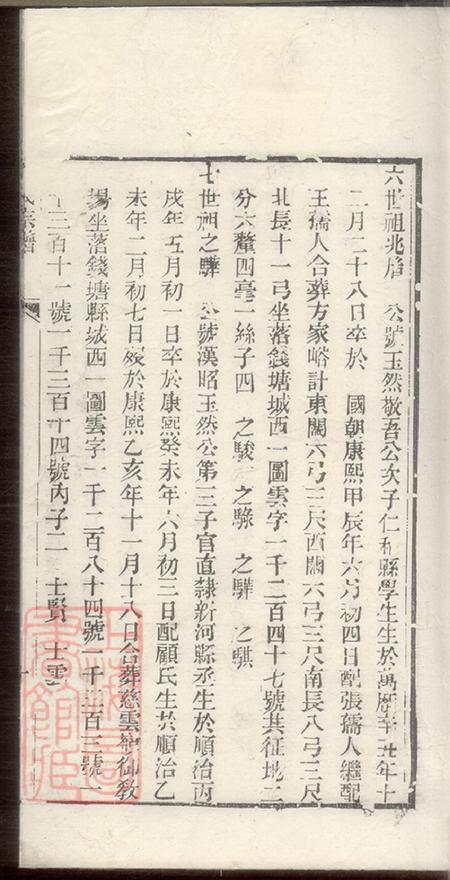 六世祖兆 公號玉然敬吾公次子仁和縣學生生於萬曆辛丑年十
二月二十八日卒於 國朝康熙甲辰年六月初四日配張孺人繼配
王孺人合葬方家峪計東闊六弓三尺西闊六弓三尺南長八弓三尺
北長十一弓坐落錢塘城西一圖雲字一千二百四十七號共征地二
分六釐四毫一絲子四 之駿 之騄 之驊 之騏
七世祖之驊 公號漢昭玉然公第三子官直隸新河縣丞生於順治丙
戌年五月初一日卒於康熙癸未年六月初三日配顧氏生於順治乙
未年二月初七日歿於康熙乙亥年十一月十八日合葬慈雲嶺御教
場坐落錢塘縣城西一圖雲字一千二百八十四號一千三百三號一
千三百十一號一千三百十四號內子二 士賢 士雲
氏宗譜